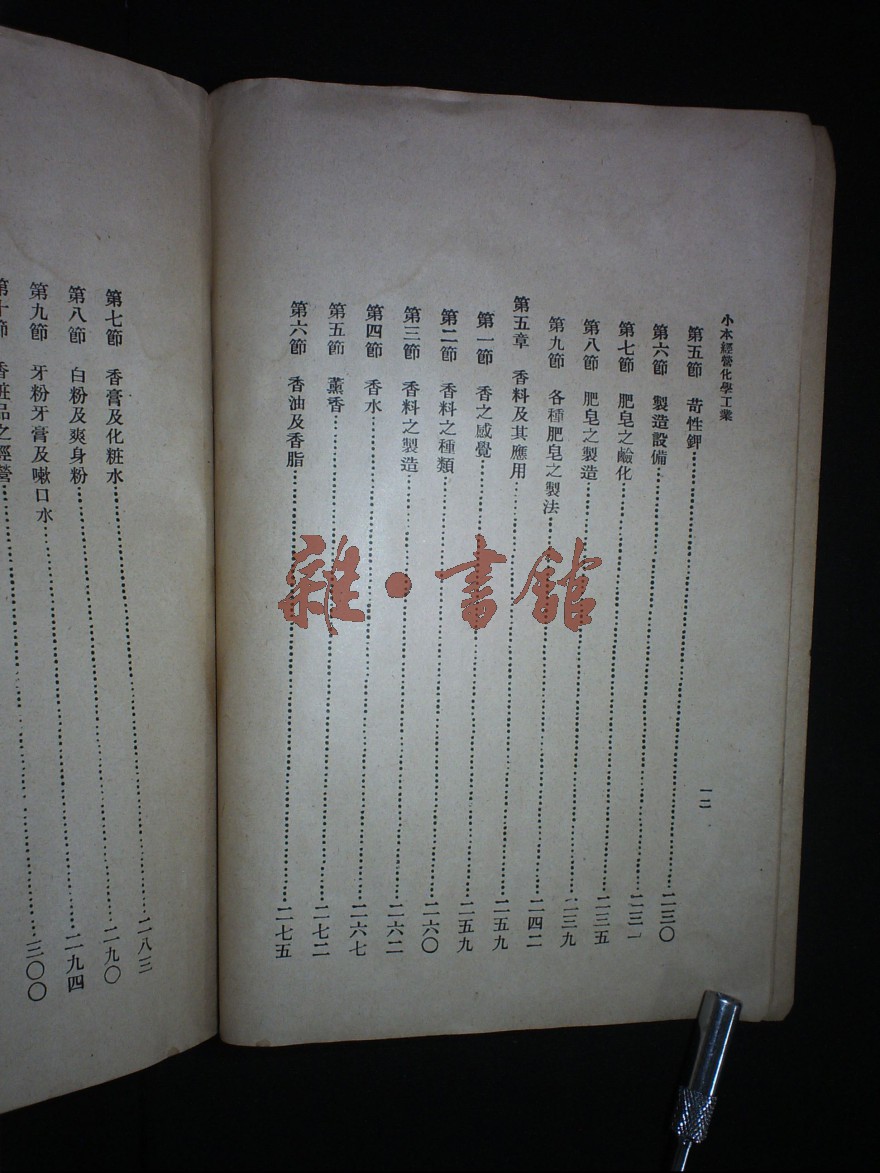 小本經營化學工業
一二
第五節 苛性鉀……二三〇
第六節 製造設備……二三一
第七節 肥皂之鹼化……二三五
第八節 肥皂之製造……二三九
第九節 各種肥皂之製法……二四二
第五章 香料及其應用……二五九
第一節 香之感覺……二五九
第二節 香料之種類……二六〇
第三節 香料之製造……二六二
第四節 香水……二六七
第五節 薰香……二七二
第六節 香油及香脂……二七五
第七節 香膏及化粧水……二八三
第八節 白粉及爽身粉……二九〇
第九節 牙粉牙膏及嗽口水……二九四
第十節 香粧品之經營……三〇〇
雜·書舘